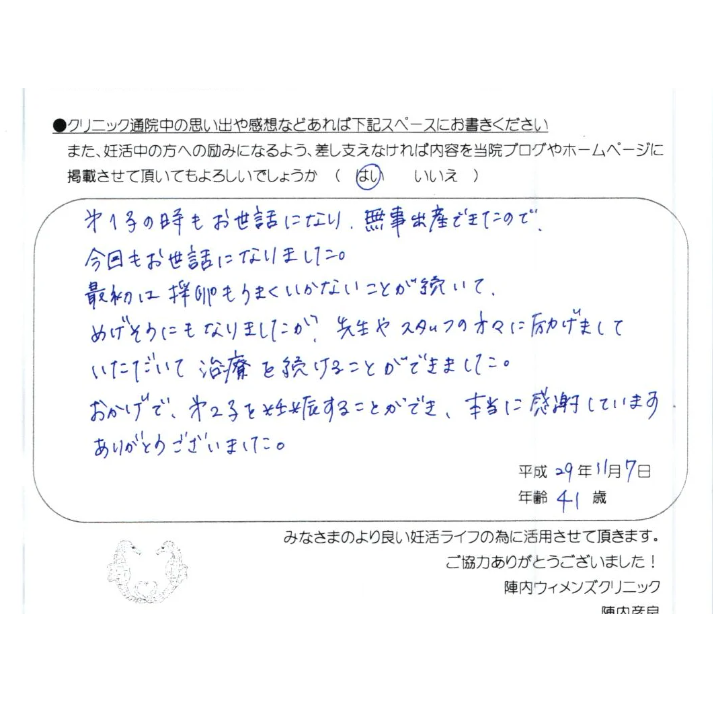 ●クリニック通院中の思い出や感想などあれば下記スペースにお書きください
また、妊活中の方への励みになるよう、差し支えなければ内容を当院ブログやホームページに
掲載させて頂いてもよろしいでしょうか （ はい　　いいえ ）
第1子の時もお世話になり、無事出産できたので、
今回もお世話になりました。
最初は採卵もうまくいかないことが続いて、
めげそうにもなりましたが、先生やスタッフの方々に励げまして
いただいて治療を続けることができました。
おかげで、第2子を妊娠することができ、本当に感謝しています。
ありがとうございました。
平成 29 年 11 月 7 日
年齢 41 歳
みなさまのより良い妊活ライフの為に活用させて頂きます。
ご協力ありがとうございました！
陣内ウィメンズクリニック
陣内彦良